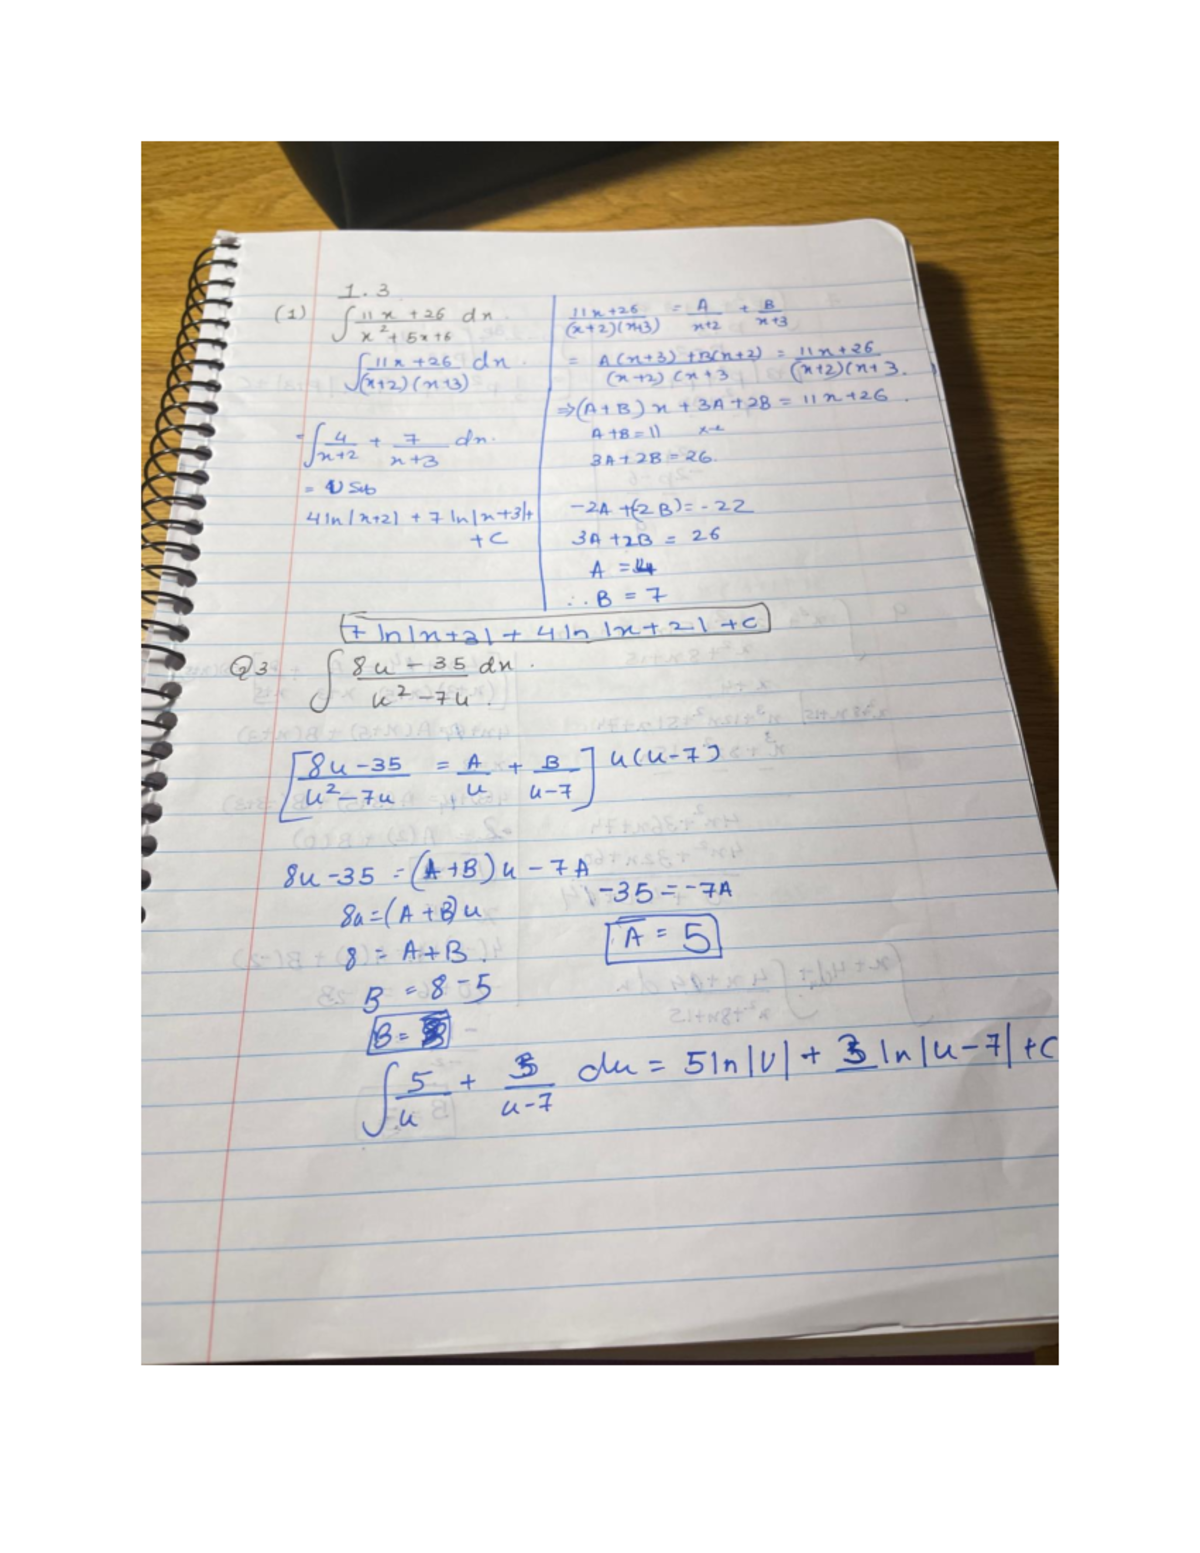 1.3
(1) ∫ (11x + 26)/(x² + 5x + 6) dx.
∫ (11x + 26)/((x+2)(x+3)) dx.
= ∫ 4/(x+2) + 7/(x+3) dx.
= U Sub
4 ln|x+2| + 7 ln|x+3| +
+ C
(11x+26)/((x+2)(x+3)) = A/(x+2) + B/(x+3)
= (A(x+3) + B(x+2))/((x+2)(x+3 = (11x+26)/((x+2)(x+3.
⇒ (A+B)x + 3A+2B = 11x+26.
A+B = 11
3A+2B = 26.
-2A +(-2B) = -22
3A+2B = 26
A = 4
∴ B = 7
7 ln|x+3| + 4 ln|x+2| + C
Q3 ∫ (8u - 35)/(u² - 7u) dx.
[(8u-35)/(u²-7u) = A/u + B/(u-7)] u(u-7)
8u-35 = (A+B)u - 7A
-35 = -7A
8u = (A+B)u
A = 5
8 = A+B.
B = 8-5
B = 3
∫ 5/u + 3/(u-7) du = 5 ln|U| + 3 ln|u-7| + C